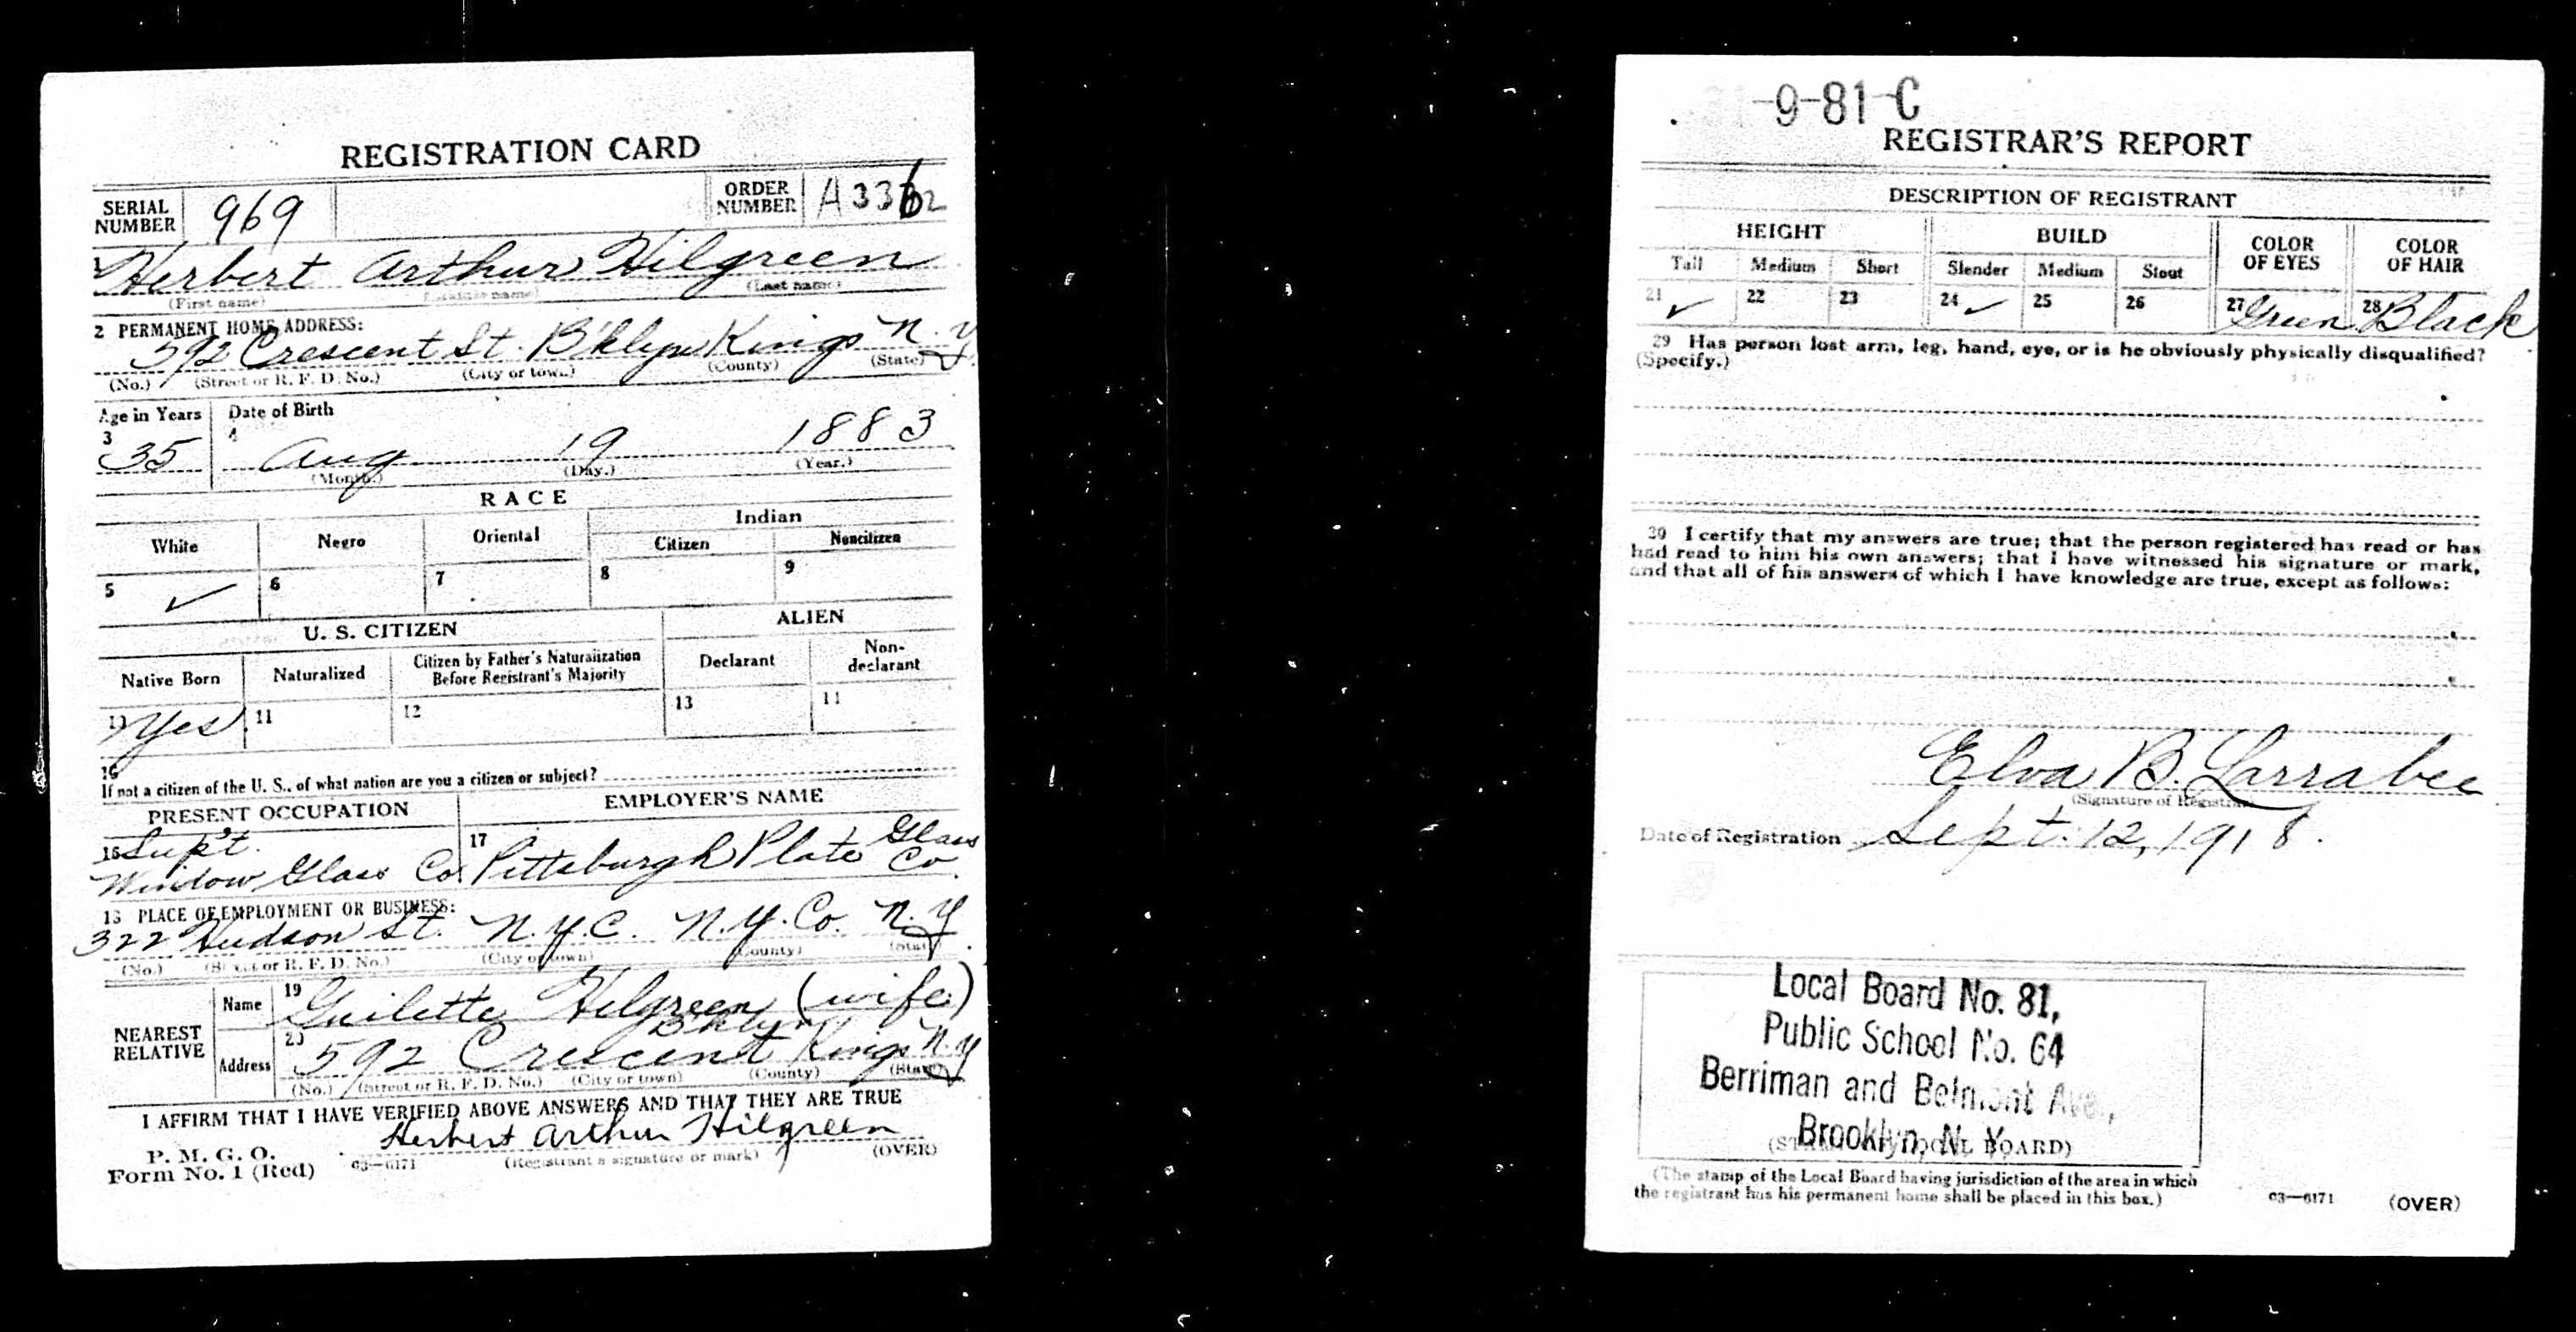 REGISTRATION CARD
SERIAL NUMBER 969 ORDER NUMBER A3362
1 Herbert Arthur Hilgreen
(First name) (Middle name) (Last name)
2 PERMANENT HOME ADDRESS:
592 Crescent St. B'klyn Kings N.Y.
(No.) (Street or R. F. D. No.) (City or town) (County) (State)
Age in Years Date of Birth
3 4
35 Aug 19 1883
(Month.) (Day.) (Year.)
RACE
White Negro Oriental Indian
Citizen Noncitizen
5 ✓ 6 7 8 9
U. S. CITIZEN ALIEN
Native Born Naturalized Citizen by Father's Naturalization Before Registrant's Majority Declarant Non-declarant
10 Yes 11 12 13 14
15
If not a citizen of the U. S., of what nation are you a citizen or subject?
PRESENT OCCUPATION EMPLOYER'S NAME
16 Sup't. 17 Glass
Window Glass Co. Pittsburgh Plate Co.
18 PLACE OF EMPLOYMENT OR BUSINESS:
322 Hudson St. N.Y.C. N.Y. Co. N.Y
(No.) (Street or R. F. D. No.) (City or town) (County) (State)
NEAREST RELATIVE
Name 19 Guilette Hilgreen (wife)
B'klyn
Address 20 592 Crescent Kings N.Y
(No.) (Street or R. F. D. No.) (City or town) (County) (State)
I AFFIRM THAT I HAVE VERIFIED ABOVE ANSWERS AND THAT THEY ARE TRUE
Herbert Arthur Hilgreen
P. M. G. O.
Form No. 1 (Red) 03—6171 (Registrant's signature or mark) (OVER)
31-9-81-C
REGISTRAR'S REPORT
DESCRIPTION OF REGISTRANT
HEIGHT BUILD COLOR OF EYES COLOR OF HAIR
Tall Medium Short Slender Medium Stout
21 ✓ 22 23 24 ✓ 25 26 27 Green 28 Black
29 Has person lost arm, leg, hand, eye, or is he obviously physically disqualified?
(Specify.)
30 I certify that my answers are true; that the person registered has read or has
had read to him his own answers; that I have witnessed his signature or mark,
and that all of his answers of which I have knowledge are true, except as follows:
Elva B. Larrabee
(Signature of Registrar)
Date of Registration Sept. 12, 1918.
Local Board No. 81,
Public School No. 64
Berriman and Belmont Ave.,
Brooklyn, N. Y.
(STAMP OF LOCAL BOARD)
(The stamp of the Local Board having jurisdiction of the area in which
the registrant has his permanent home shall be placed in this box.)
03—6171 (OVER)